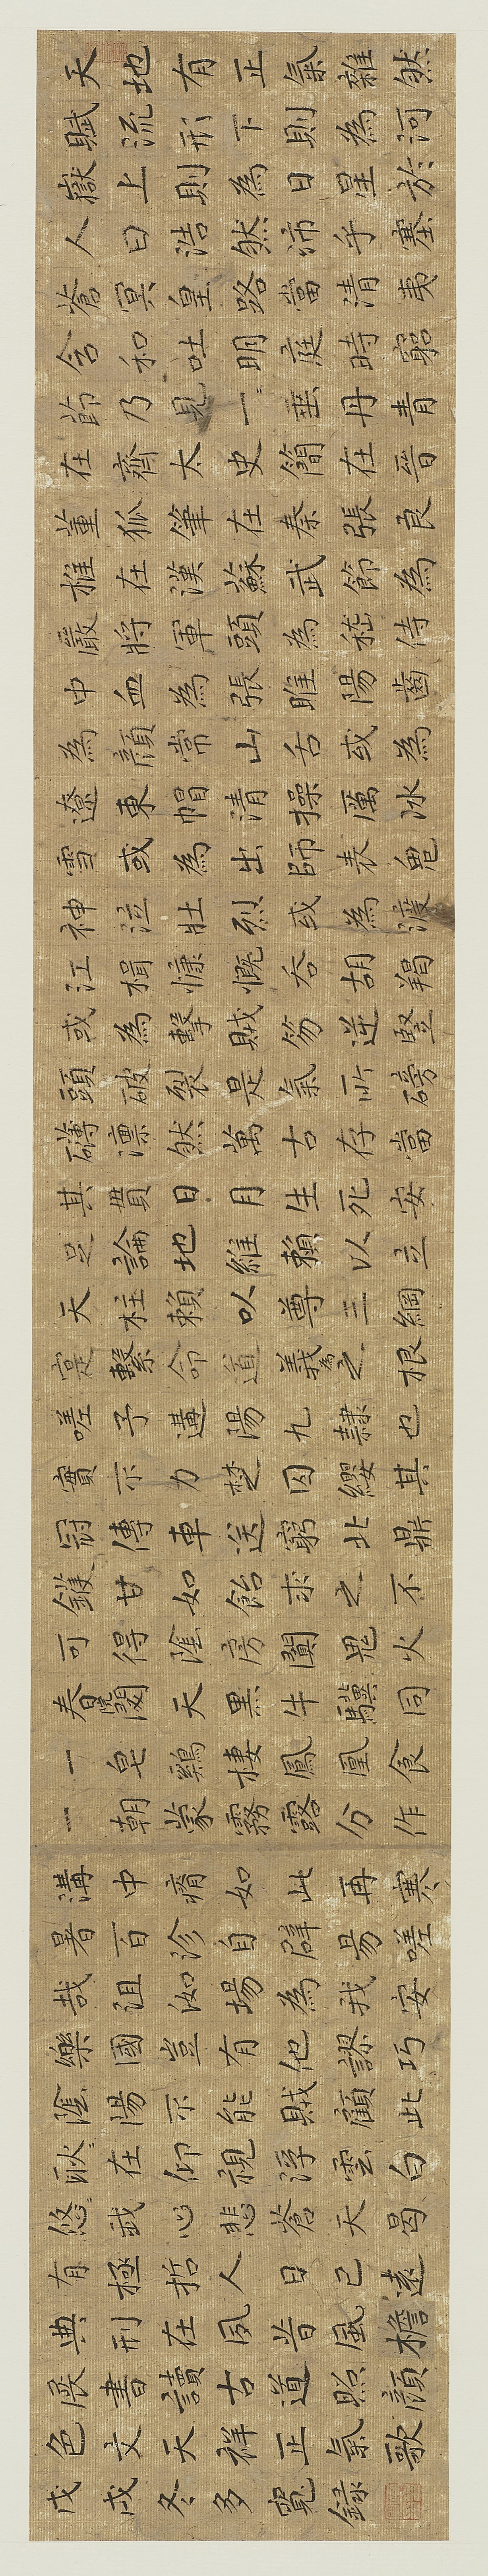 天地有正氣雜然
賦流形下則為河
嶽上則為日星於
人曰浩然沛乎塞
蒼冥皇路當清夷
含和吐明庭時窮
節乃見一一垂丹青
在齊太史簡在晉
董狐筆在秦張良
椎在漢蘇武節為
嚴將軍頭為嵇侍
中血為張睢陽齒
為顏常山舌或為
遼東帽清操厲冰
雪或為出師表鬼
神泣壯烈或為渡
江楫慷慨吞胡羯
或為擊賊笏逆豎
頭破裂是氣所磅
礴凜然萬古存當
其貫日月生死安
足論地維賴以立
天柱賴以尊三綱
寔繫命道義為之根
嗟予遘陽九隸也
實不力楚囚纓其
冠傳車送窮北鼎
鑊甘如飴求之不
可得陰房闃鬼火
春院閟天黑牛驥同
一皂雞棲鳳凰食
一朝蒙霧露分作
溝中瘠如此再寒
暑百沴自辟易嗟
哉沮洳場為我安
樂國豈有他謬巧
陰陽不能賊顧此
耿耿在仰視浮雲白
悠悠我心悲蒼天曷
有極哲人日已遠
典刑在夙昔風檐
展書讀古道照顏
色文天祥正氣歌
戊戌冬多寬錄